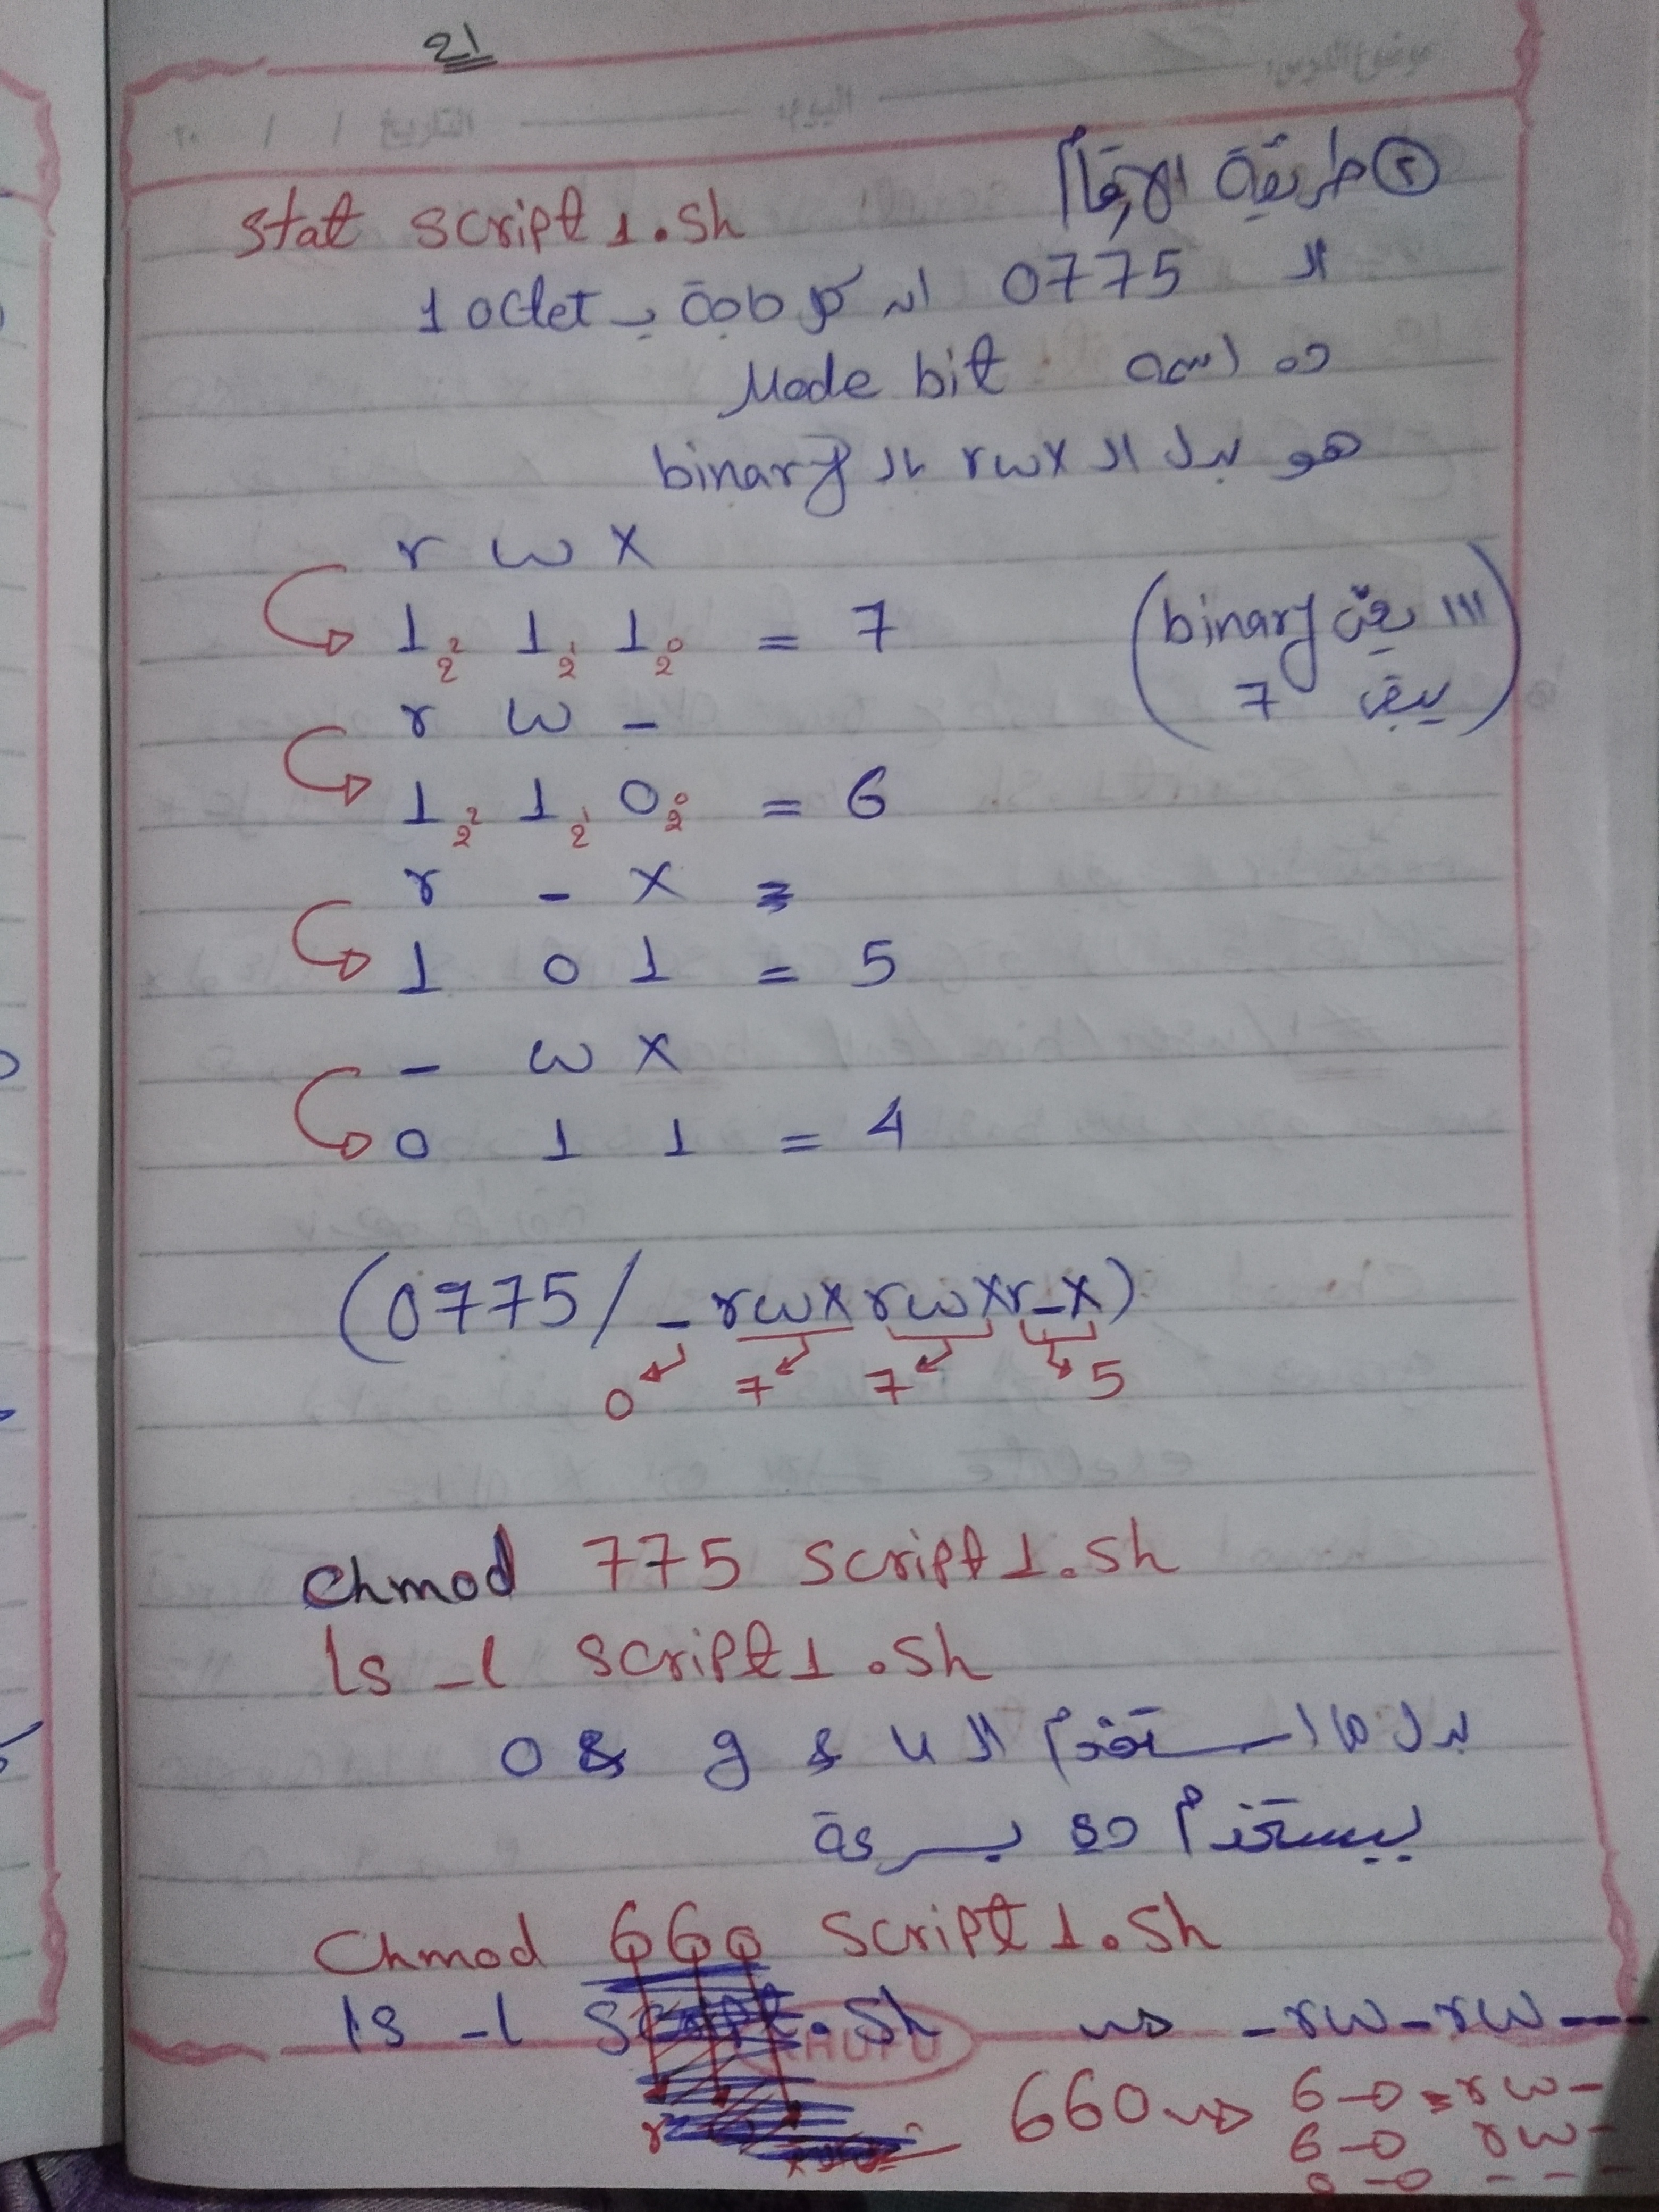 21
② طريقة الارقام
stat script1.sh
الـ 0775 اللى كل حاجة بـ 1 octet
ده اسمه Mode bit
هو بدل الـ rwx بالـ binary
r w x
1 2² 1 2¹ 1 2⁰ = 7
(111 يعنى binary
يبقى 7)
r w -
1 2² 1 2¹ 0 2⁰ = 6
r - x =
1 0 1 = 5
- w x
0 1 1 = 4
(0775/-rwxrwxr-x)
0 7 7 5
Chmod 775 script1.sh
ls -l script1.sh
بدل ما استخدم الـ u & g & o
بيستخدم دى بسرعة
Chmod 660 script1.sh
ls -l script.sh → -rw-rw----
660 → 6-0 = rw-
6-0 rw-
0-0 ---